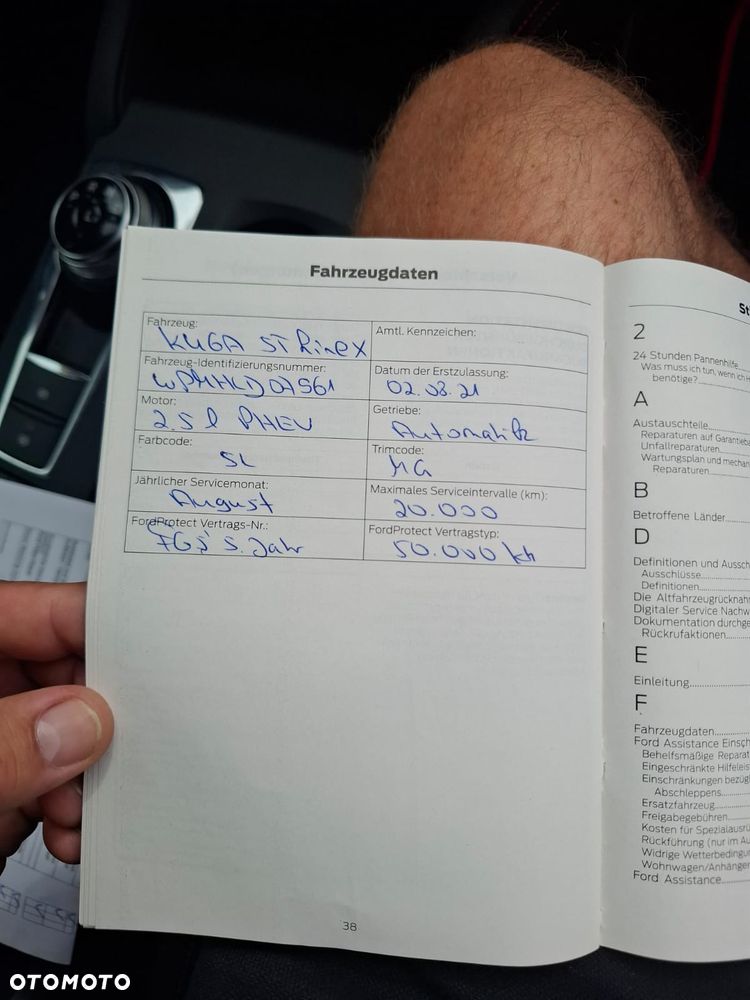 Fahrzeugdaten
Fahrzeug:
KUGA ST Line X
Amtl. Kennzeichen:
Fahrzeug-Identifizierungsnummer:
Datum der Erstzulassung:
02.08.21
Motor:
2.5 l PHEV
Getriebe:
Automatik
Farbcode:
SL
Trimcode:
MG
Jährlicher Servicemonat:
August
Maximales Serviceintervalle (km):
20.000
FordProtect Vertrags-Nr.:
FGS 5. Jahr
FordProtect Vertragstyp:
50.000 km
38
St
2
24 Stunden Pannenhilfe
Was muss ich tun, wenn ich H
benötige?
A
Austauschteile
Reparaturen auf Garantieba
Unfallreparaturen
Wartungsplan und mechan
Reparaturen
B
Betroffene Länder
D
Definitionen und Aussch
Ausschlüsse
Definitionen
Die Altfahrzeugrücknah
Digitaler Service Nachw
Dokumentation durchge
Rückrufaktionen
E
Einleitung
F
Fahrzeugdaten
Ford Assistance Einsch
Behelfsmäßige Reparat
Eingeschränkte Hilfeleis
Einschränkungen bezüg
Abschleppens
Ersatzfahrzeug
Freigabegebühren
Kosten für Spezialausrü
Rückführung (nur im Au
Widrige Wetterbedingu
Wohnwagen/Anhänger
Ford Assistance
OTOMOTO